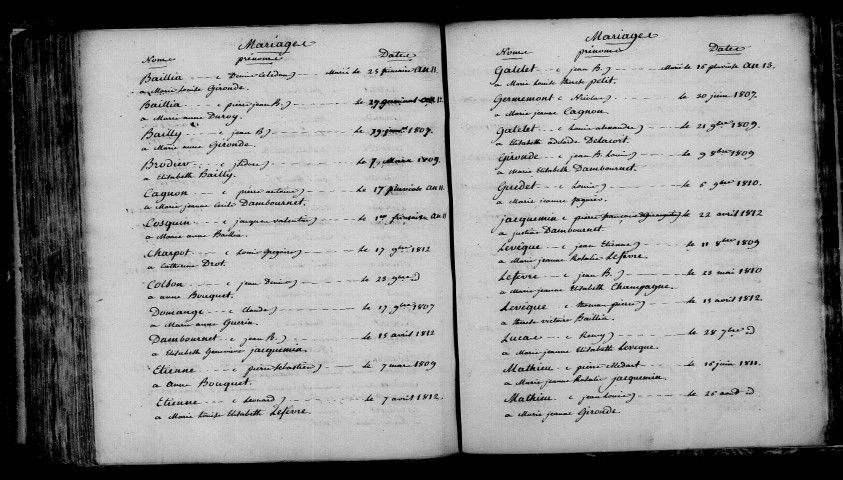 Mariages
Noms prénoms Dates
Baillia (Denis Celedon) Marié le 25 frimaire an 11.
a Marie Louise Gironde.
Baillia (pierre jean B.) le 27 an 12
a Marie anne Duroy.
Bailly (jean B) le 19 1807.
a Marie anne Gironde
Brodier (isidore) le 7 Mars 1809.
a Elisabeth Bailly.
Cagnon (pierre antoine) le 17 pluviose an 11.
a Marie jeanne Cecile Dambournet.
Cosquin (jacques valentin) le 1er frimaire an 11
a Marie anne Baillia.
Charpot (Louis Gregoire) le 17 9bre 1812
a Catherine Drot.
Colson (jean Denis) le 23 9bre d
a anne Bouquet.
Domange (Claude) le 17 9bre 1807
a Marie anne Guerin.
Dambournet (jean B.) le 15 avril 1812
a Elisabeth Genevieve jacquemin.
Etienne (pierre Sebastien) le 7 mars 1809
a anne Bouquet.
Etienne (Leonard) le 7 avril 1812.
a Marie Louise Elisabeth Lefevre.
Mariages
Noms prénoms Dates
Galelet (jean B.) Marié le 16 pluviose an 13.
a Marie Louise Therese petit.
Germemont (Nicolas) le 20 juin 1807.
a Marie jeanne Cagnon.
Galelet (Louis alexandre) le 21 9bre 1809.
a Elisabeth adelaide Delacort.
Gironde (jean B. Louis) le 9 8bre 1809
a Marie Elisabeth Dambournet.
Guedet (Louis) le 6 9bre 1810.
a Marie jeanne
jacquemin (pierre françois) le 22 avril 1812
a justine Dambournet.
Levêque (jean Etienne) le 11 8bre 1809
a Marie jeanne Rosalie Lefevre.
Lefevre (jean B.) le 23 mai 1810
a Marie jeanne Elisabeth Champagne.
Levêque (Thomas pierre) le 15 avril 1812.
a therese victoire Baillia.
Lucas (Remy) le 28 7bre d
a Marie jeanne Elisabeth Leveque.
Mathieu (pierre Medart) le 16 juin 1811.
a Marie jeanne Rosalie jacquemin.
Mathieu (jean Louis) le 26 aout d
a Marie jeanne Gironde.